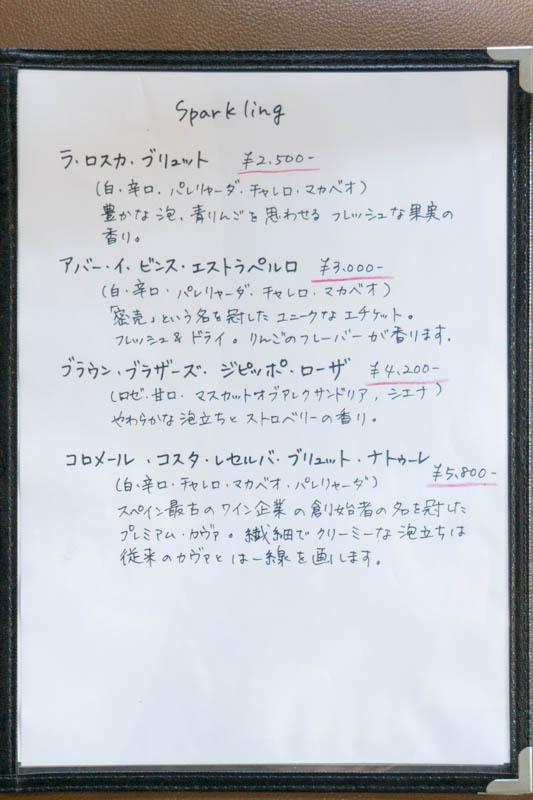 Sparkling
ラ・ロスカ・ブリュット ¥2.500-
(白・辛口・パレリャーダ・チャレロ・マカベオ)
豊かな泡、青りんごを思わせる フレッシュな果実の
香り。
アバー・イ・ビンス・エストラペルロ ¥3.000-
(白・辛口・パレリャーダ・チャレロ・マカベオ)
「密売」という名を冠した ユニークな エチケット。
フレッシュ&ドライ。りんごのフレーバーが香ります。
ブラウン・ブラザーズ・ジビッポ・ローザ ¥4.200-
(ロゼ・甘口・マスカットオブアレクサンドリア, シエナ)
やわらかな泡立ちと ストロベリーの香り。
コロメール・コスタ・レセルバ・ブリュット・ナトゥーレ
¥5,800-
(白・辛口・チャレロ・マカベオ・パレリャーダ)
スペイン最古の ワイン企業の創始者の名を冠した
プレミアム・カヴァ。繊細でクリーミーな泡立ちは
従来のカヴァとは一線を画します。